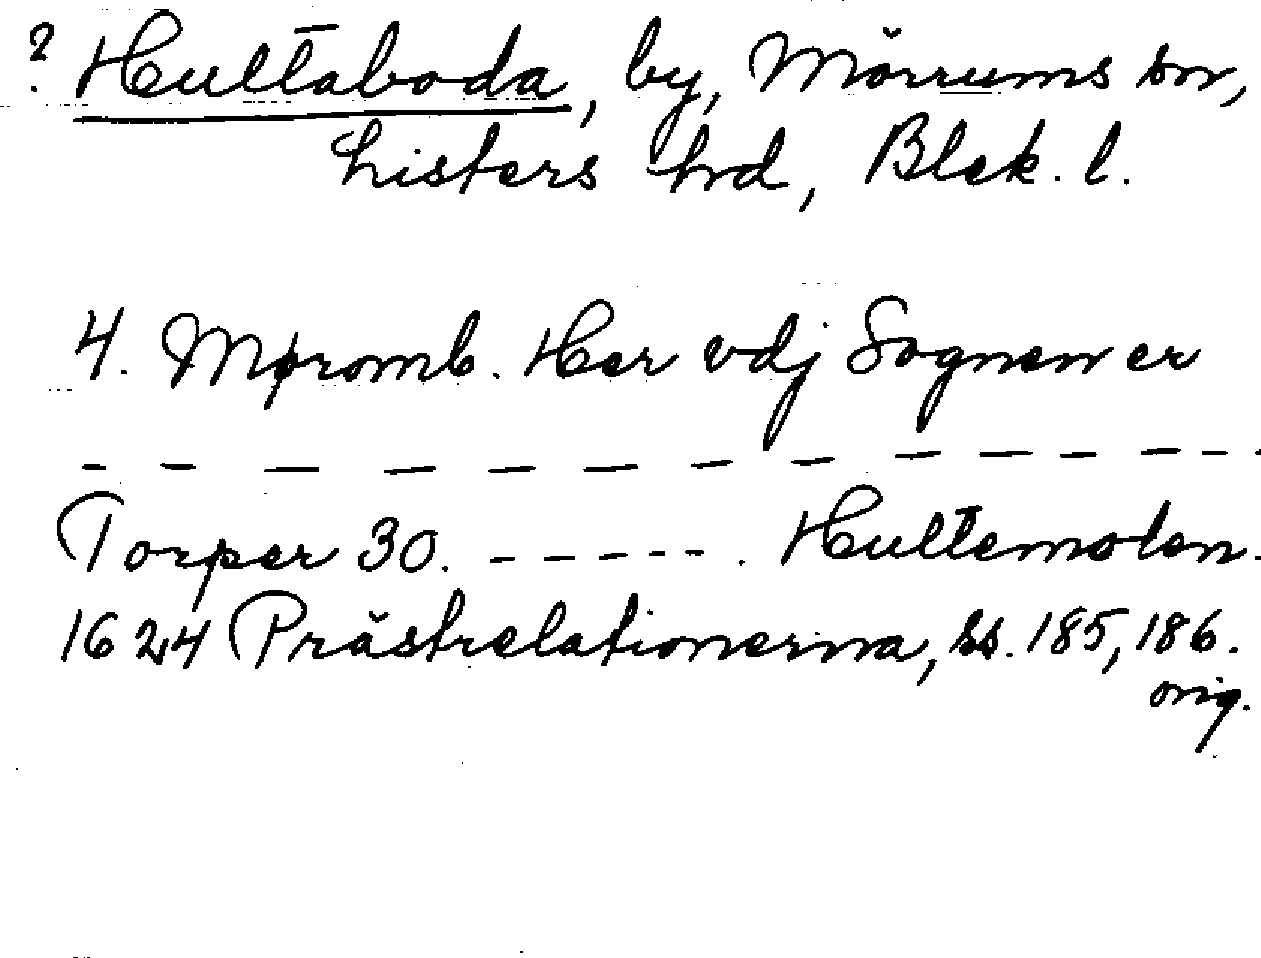 ? Hultaboda, by, Mörrums sn,
Listers hrd, Blek. l.
4. Møromb. Her vdj Sognen er
— — — — — — — — — — — —
Torper 30. - - - - - . Hultemolen.
1624 Prästrelationerna, ss. 185, 186.
orig.